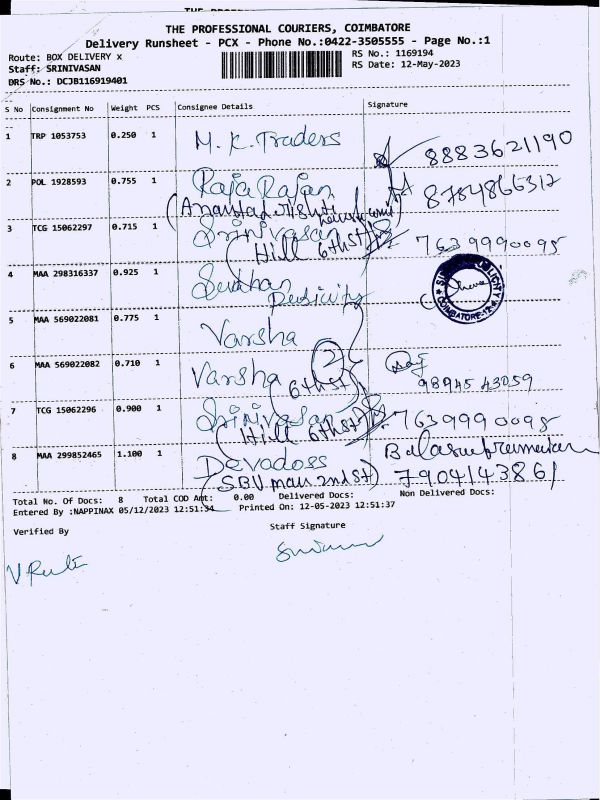 THE PROFESSIONAL COURIERS, COIMBATORE
Delivery Runsheet - PCX - Phone No.:0422-3505555 - Page No.:1
Route: BOX DELIVERY x
RS No.: 1169194
Staff: SRINIVASAN
RS Date: 12-May-2023
DRS No.: DCJB116919401
S No Consignment No Weight PCS Consignee Details Signature
1 TRP 1053753 0.250 1 M. K. Traders 8883621190
2 POL 1928593 0.755 1 Raja Rajan 8754866312
3 TCG 15062297 0.715 1 Srinivasan 7639990095
(Hill 6th st)
4 MAA 298316337 0.925 1 Sudhan
5 MAA 569022081 0.775 1 Varsha
6 MAA 569022082 0.710 1 Varsha 2
(6th st) 98945 43059
7 TCG 15062296 0.900 1 Srinivasan 7639990095
(Hill 6th st)
8 MAA 299852465 1.100 1 Devadoss
(SBV main 2nd st) 7904143861
Total No. Of Docs: 8 Total COD Amt: 0.00 Delivered Docs: Non Delivered Docs:
Entered By :NAPPINAX 05/12/2023 12:51:34 Printed On: 12-05-2023 12:51:37
Verified By
Staff Signature